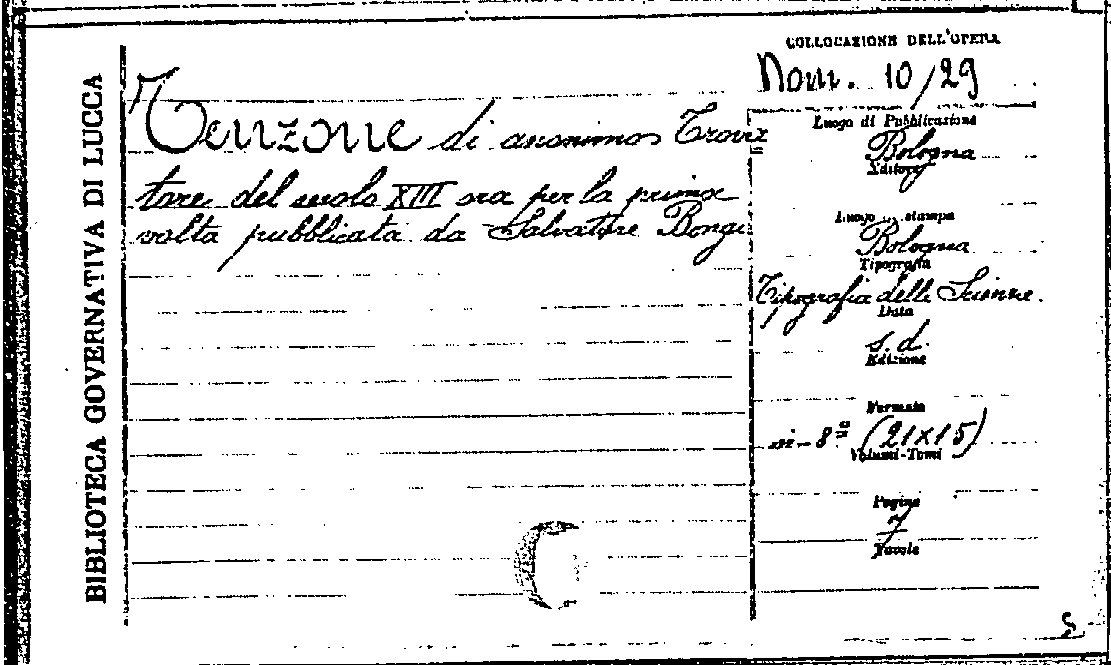 BIBLIOTECA GOVERNATIVA DI LUCCA
COLLOCAZIONE DELL'OPERA
10/29
Tenzone di anonimo Trova=
tore del secolo XIII ora per la prima
volta pubblicata da Salvatore Bongi
Luogo di Pubblicazione
Bologna
Editore
Luogo di stampa
Bologna
Tipografia
Tipografia delle Scienze.
Data
s. d.
Edizione
Formato
in-8º (21x15)
Volumi-Tomi
Pagine
7
Tavole